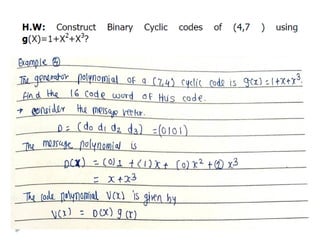 H.W: Construct Binary Cyclic codes of (4,7 ) using
g(X)=1+X²+X³?
Example
The generator polynomial of a (7,4) cyclic code is g(x)=1+x+x³.
find the 16 code word of this code.
→ consider the message vector.
D = (d0 d1 d2 d3) = (0101)
The message polynomial is
D(X) = (0)1 + (1)X + (0)X² + (1)X³
= x+x3
The code polynomial V(X) is given by
V(X) = D(X) g(X)